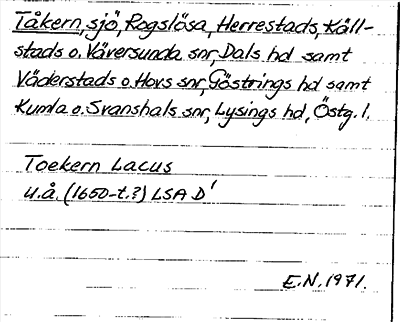 Tåkern, sjö, Rogslösa, Herrestads, Käll-
stads o. Väversunda snr, Dals hd samt
Väderstads o. Hovs snr, Göstrings hd samt
Kumla o. Svanshals snr, Lysings hd, Östg. l.
Toekern Lacus
u.å. (1650-t.?) LSA D¹
E.N. 1971.